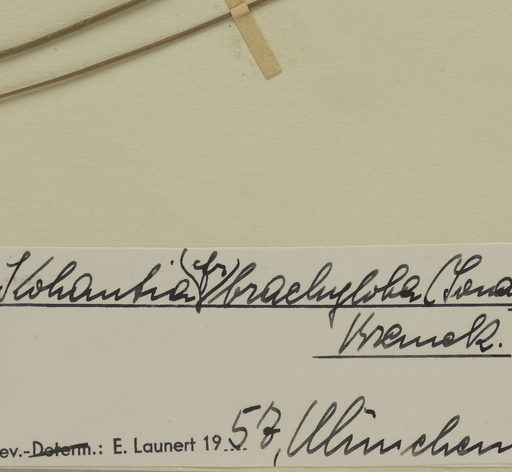 Kohautia (cfr) brachyloba (Sond.
Bremek.
ev.-Determ.: E. Launert 19..57, München